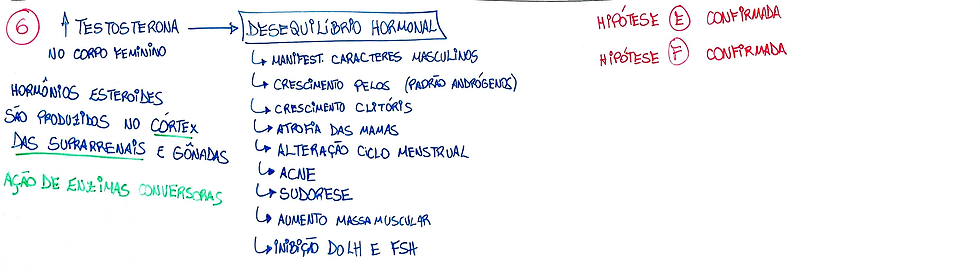 6 ↑ TESTOSTERONA → DESEQUILÍBRIO HORMONAL
NO CORPO FEMININO
HORMÔNIOS ESTEROIDES
SÃO PRODUZIDOS NO CÓRTEX
DAS SUPRARRENAIS E GÔNADAS
AÇÃO DE ENZIMAS CONVERSORAS
↳ MANIFEST. CARACTERES MASCULINOS
↳ CRESCIMENTO PELOS (PADRÃO ANDRÓGENOS)
↳ CRESCIMENTO CLITÓRIS
↳ ATROFIA DAS MAMAS
↳ ALTERAÇÃO CICLO MENSTRUAL
↳ ACNE
↳ SUDORESE
↳ AUMENTO MASSA MUSCULAR
↳ INIBIÇÃO DO LH E FSH
HIPÓTESE E CONFIRMADA
HIPÓTESE F CONFIRMADA